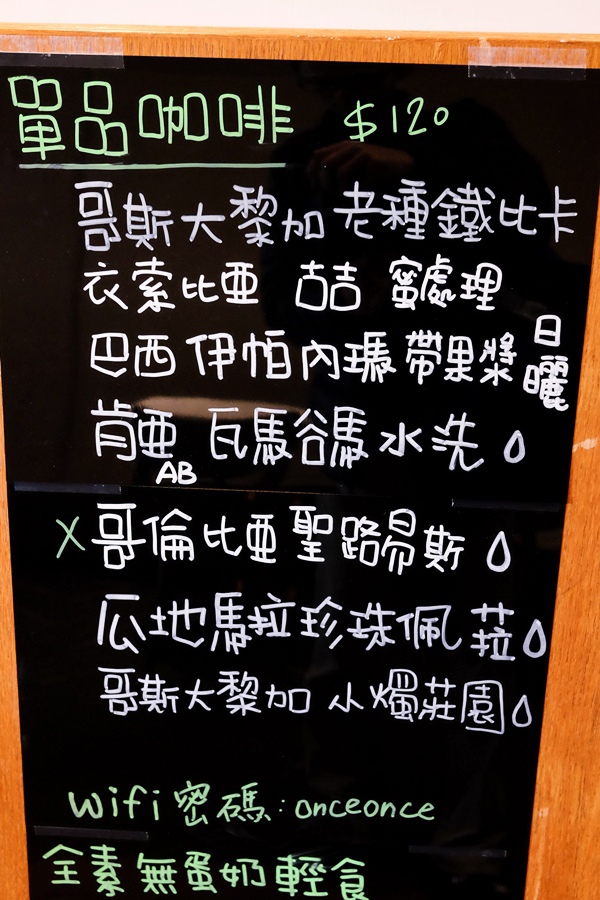 單品咖啡 $120
哥斯大黎加 老種鐵比卡
衣索比亞 喆 蜜處理
巴西 伊帕內瑪 帶果漿 日曬
肯亞AB 瓦馬谷馬 水洗
X 哥倫比亞 聖路易斯
瓜地馬拉 珍珠佩菈
哥斯大黎加 小燭莊園
wifi 密碼:onceonce
全素無蛋奶輕食